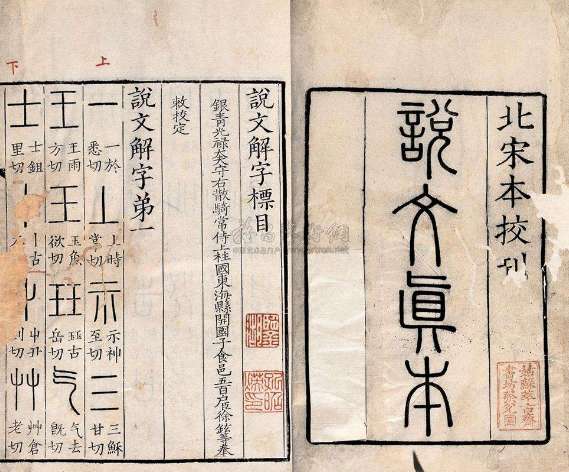 北宋本校刊
說文眞本
說文解字標目
銀青光祿大夫守右散騎常侍上柱國東海縣開國子食邑五百户臣徐鉉等奉
敕校定
說文解字弟一
上
一 一於悉切 丄 丄時掌切 示 示神至切 三 三穌甘切
王 王雨方切 王 玉魚欲切 玨 玨古岳切 气 气去旣切
下
士 士鉏里切 丨 丨古 屮 屮丑列切 艸 艸倉老切